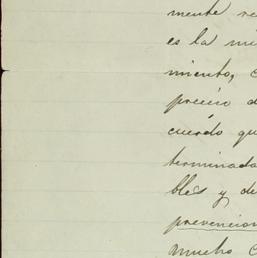 mente re
es la mi
miento, c
precio d
cuerdo qu
terminada
bles y de
prevencion
mucho c